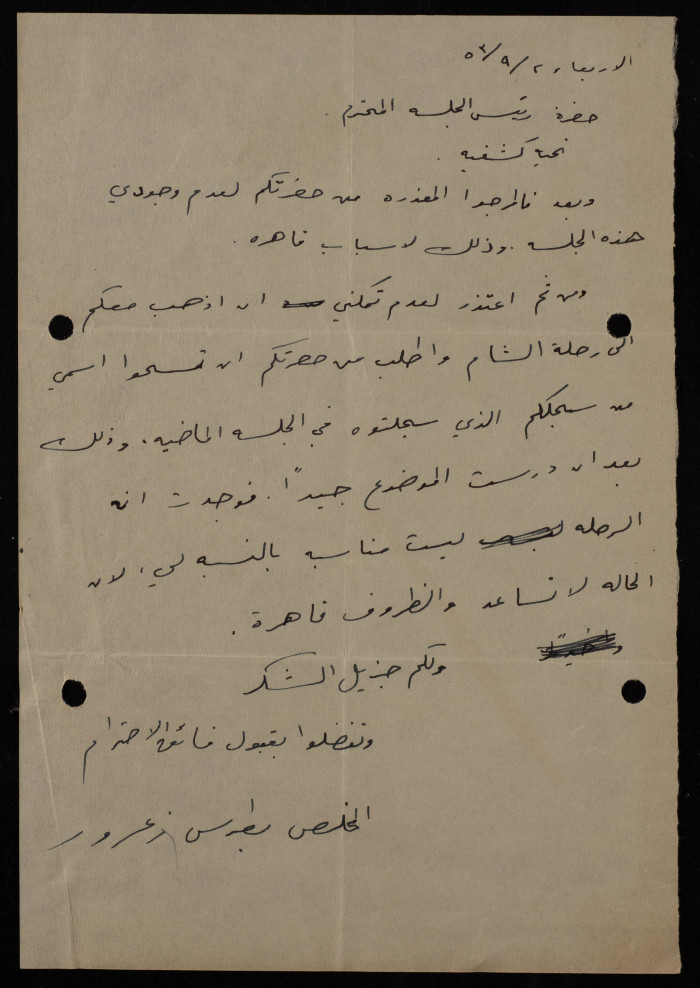 الاربعاء ٢/٩/٥٣
حضرة رئيس الجلسه المحترم .
تحية كشفيه .
وبعد فارجوا المعذره من حضرتكم لعدم وجودي
هذه الجلسه . وذلك لاسباب قاهره .
ومن ثم اعتذر لعدم تمكني ان اذهب معكم
الى رحلة الشام واطلب من حضرتكم ان تمسحوا اسمي
من سجلكم الذي سجلتوه في الجلسه الماضيه . وذلك
بعد ان درست الموضوع جيداً . فوجدت انه
الرحله ليست مناسبه بالنسبه لي ، لان
الحاله لا تساعد والظروف قاهرة .
واخيراً
ولكم جزيل الشكر
وتفضلوا بقبول فائق الاحترام
المخلص بطرس زعرور